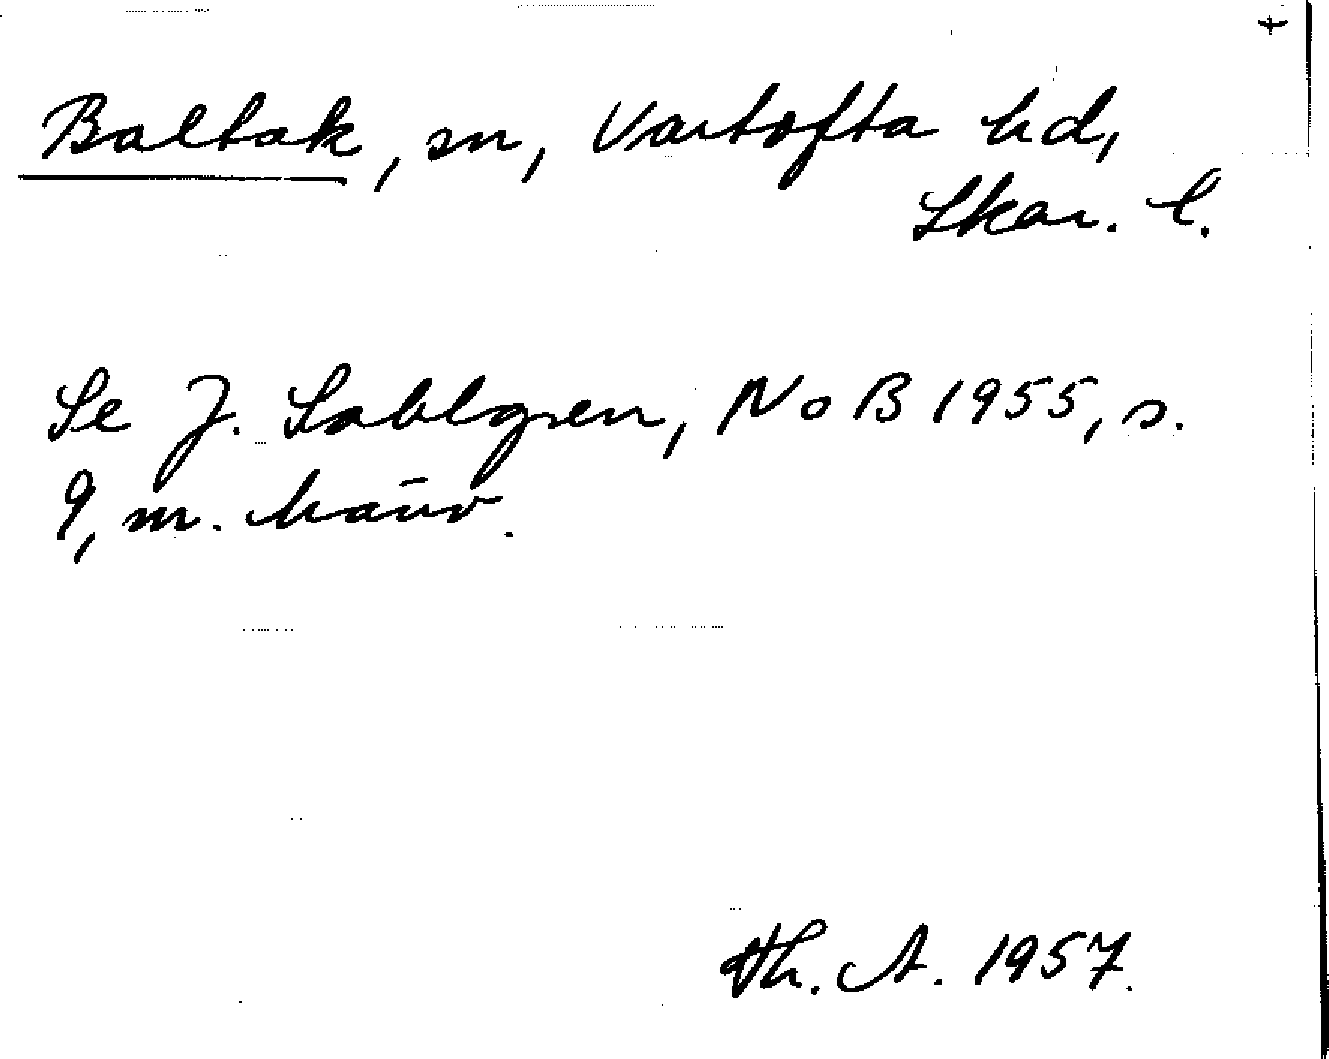 Baltak, sn, Vartofta hd,
Skar. l.
Se J. Sahlgren, NoB 1955, s.
9, m. hänv.
Th. A. 1957.